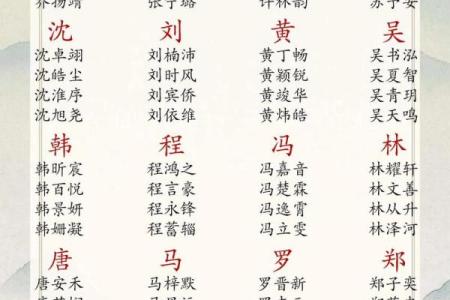 乔扬靖 张宁璐 许林韵 苏予安
沈 刘 黄 吴
沈卓翊 刘楠沛 黄丁畅 吴书泓
沈皓尘 刘时风 黄颖锐 吴夏智
沈淮序 刘宾侨 黄竣华 吴青玥
沈旭尧 刘依维 黄炳皓 吴天鸣
韩 程 冯 林
韩昕宸 程鸿之 冯嘉音 林耀轩
韩百悦 程言豪 冯楚霖 林文善
韩景妍 程永锋 冯逸霄 林从升
韩姗凝 程蓄韬 冯立雯 林泽河
唐 马 罗 郑
唐安禾 马梓默 罗晋新 郑子奕